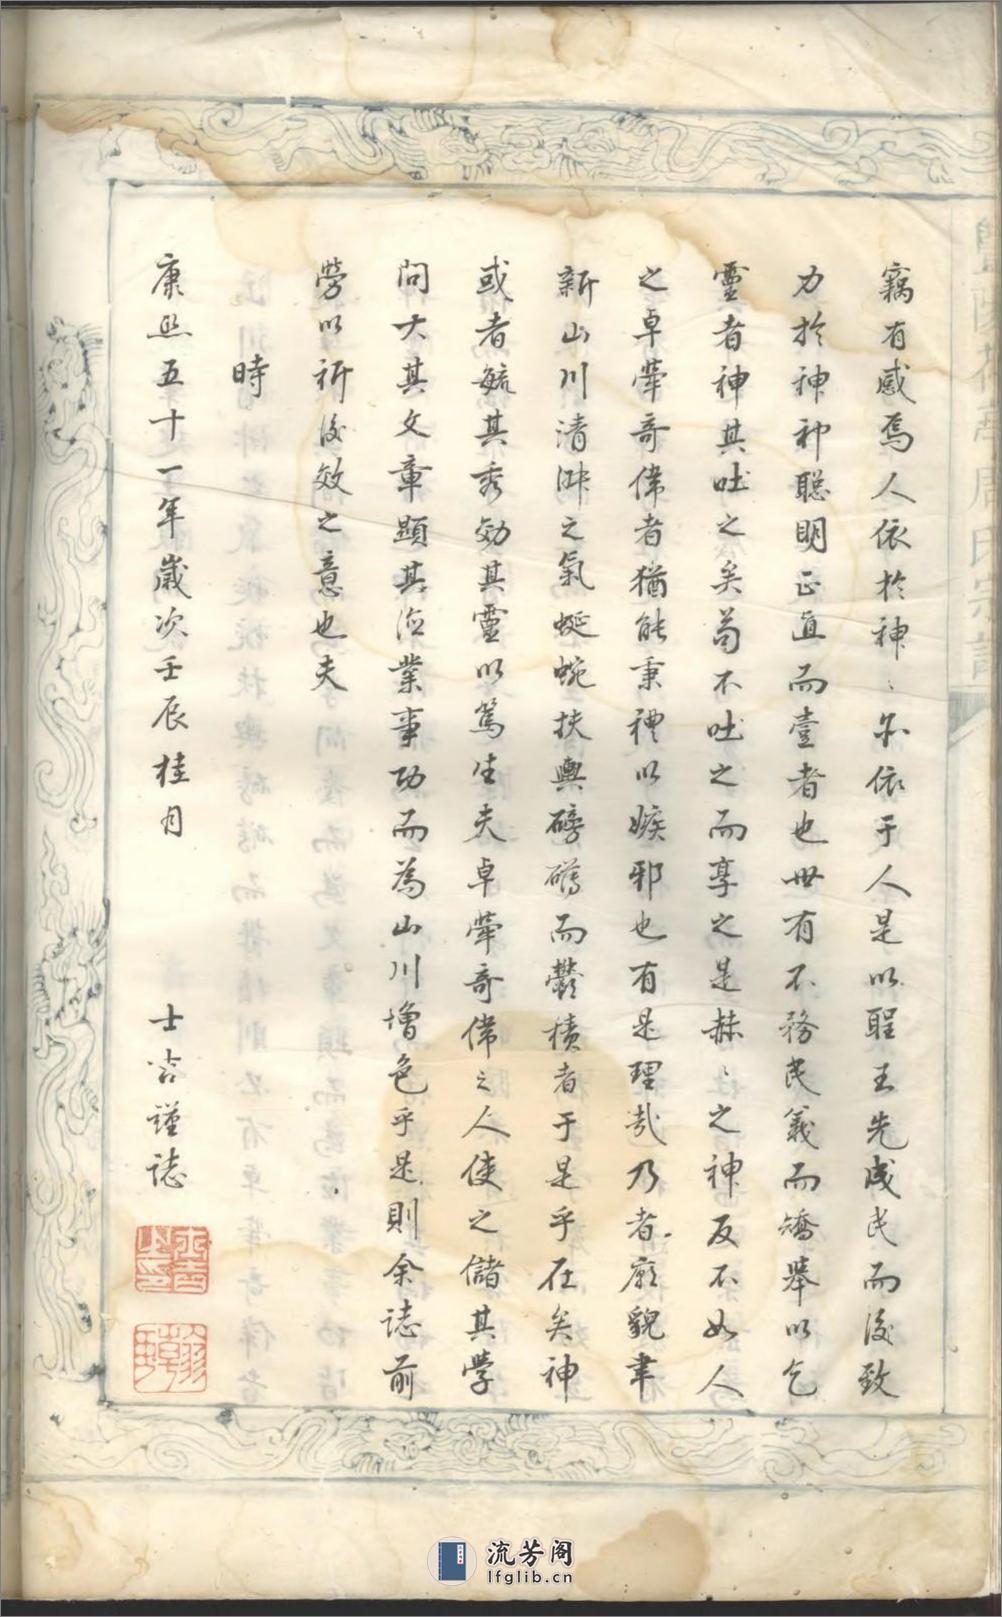 竊有感焉人依於神〻尔依于人是以聖王先成民而後致
力於神神聰明正直而壹者也世有不務民義而矯舉以乞
靈者神其吐之矣苟不吐之而享之是赫〻之神反不如人
之卓犖奇偉者猶能秉禮以嫉邪也有是理哉乃者廟貌聿
新山川清淑之氣蜒蜿扶輿磅礴而鬱積者于是乎在矣神
或者毓其秀効其靈以篤生夫卓犖奇偉之人使之儲其學
問大其文章顯其德業事功而為山川增色乎是則余誌前
勞以祈後效之意也夫
時
康熙五十一年歲次壬辰桂月
士吉謹誌
流芳阁
lfglib.cn